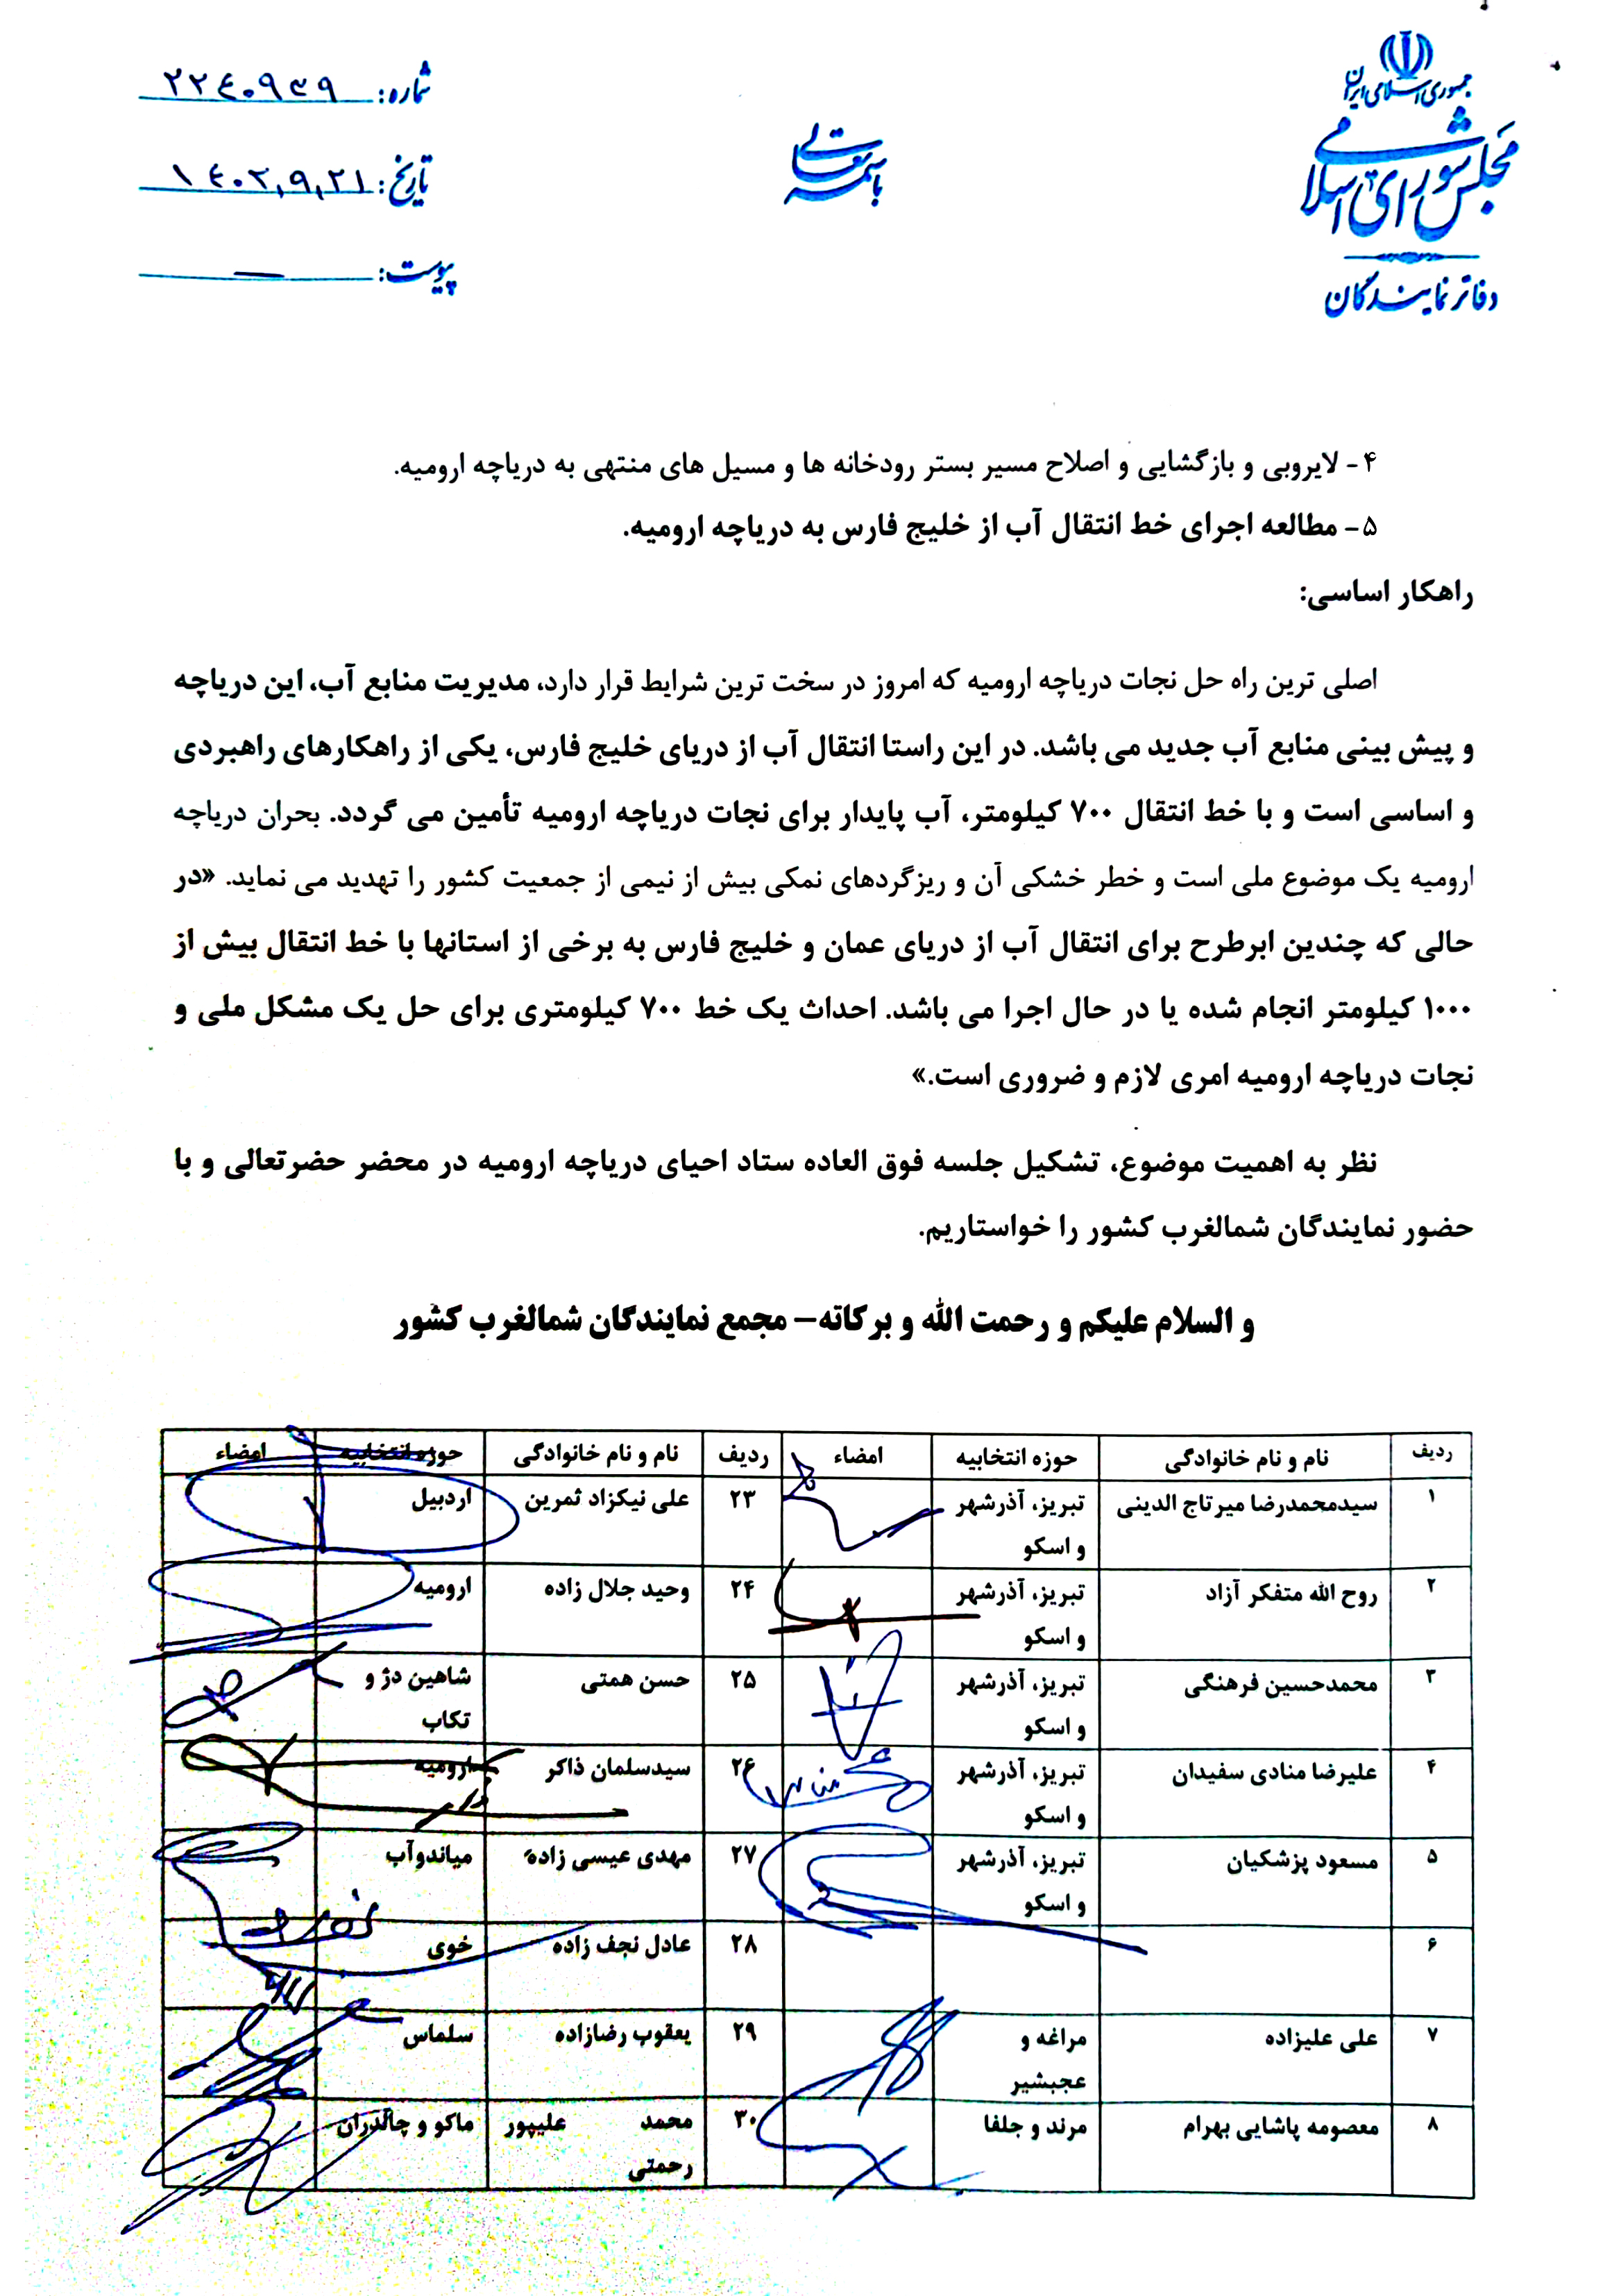 جمهوری اسلامی ایران
مجلس شورای اسلامی
دفاتر نمایندگان
باسمه تعالی
شماره: ۲۲۴۰۹۳۹
تاریخ: ۱۴۰۲,۹,۲۱
پیوست: —
۴- لایروبی و بازگشایی و اصلاح مسیر بستر رودخانه ها و مسیل های منتهی به دریاچه ارومیه.
۵- مطالعه اجرای خط انتقال آب از خلیج فارس به دریاچه ارومیه.
راهکار اساسی:
اصلی ترین راه حل نجات دریاچه ارومیه که امروز در سخت ترین شرایط قرار دارد، مدیریت منابع آب، این دریاچه
و پیش بینی منابع آب جدید می باشد. در این راستا انتقال آب از دریای خلیج فارس، یکی از راهکارهای راهبردی
و اساسی است و با خط انتقال ۷۰۰ کیلومتر، آب پایدار برای نجات دریاچه ارومیه تأمین می گردد. بحران دریاچه
ارومیه یک موضوع ملی است و خطر خشکی آن و ریزگردهای نمکی بیش از نیمی از جمعیت کشور را تهدید می نماید. «در
حالی که چندین ابرطرح برای انتقال آب از دریای عمان و خلیج فارس به برخی از استانها با خط انتقال بیش از
۱۰۰۰ کیلومتر انجام شده یا در حال اجرا می باشد. احداث یک خط ۷۰۰ کیلومتری برای حل یک مشکل ملی و
نجات دریاچه ارومیه امری لازم و ضروری است.»
نظر به اهمیت موضوع، تشکیل جلسه فوق العاده ستاد احیای دریاچه ارومیه در محضر حضرتعالی و با
حضور نمایندگان شمالغرب کشور را خواستاریم.
و السلام علیکم و رحمت الله و برکاته– مجمع نمایندگان شمالغرب کشور
ردیف نام و نام خانوادگی حوزه انتخابیه امضاء ردیف نام و نام خانوادگی حوزه انتخابیه امضاء
۱ سیدمحمدرضا میرتاج الدینی تبریز، آذرشهر ۲۳ علی نیکزاد ثمرین اردبیل
و اسکو
۲ روح الله متفکر آزاد تبریز، آذرشهر ۲۴ وحید جلال زاده ارومیه
و اسکو
۳ محمدحسین فرهنگی تبریز، آذرشهر ۲۵ حسن همتی شاهین دژ و
و اسکو تکاب
۴ علیرضا منادی سفیدان تبریز، آذرشهر ۲۶ سیدسلمان ذاکر ارومیه
و اسکو
۵ مسعود پزشکیان تبریز، آذرشهر ۲۷ مهدی عیسی زاده میاندوآب
و اسکو
۶ ۲۸ عادل نجف زاده خوی
۷ علی علیزاده مراغه و ۲۹ یعقوب رضازاده سلماس
عجبشیر
۸ معصومه پاشایی بهرام مرند و جلفا ۳۰ محمد علیپور ماکو و چالدران
رحمتی